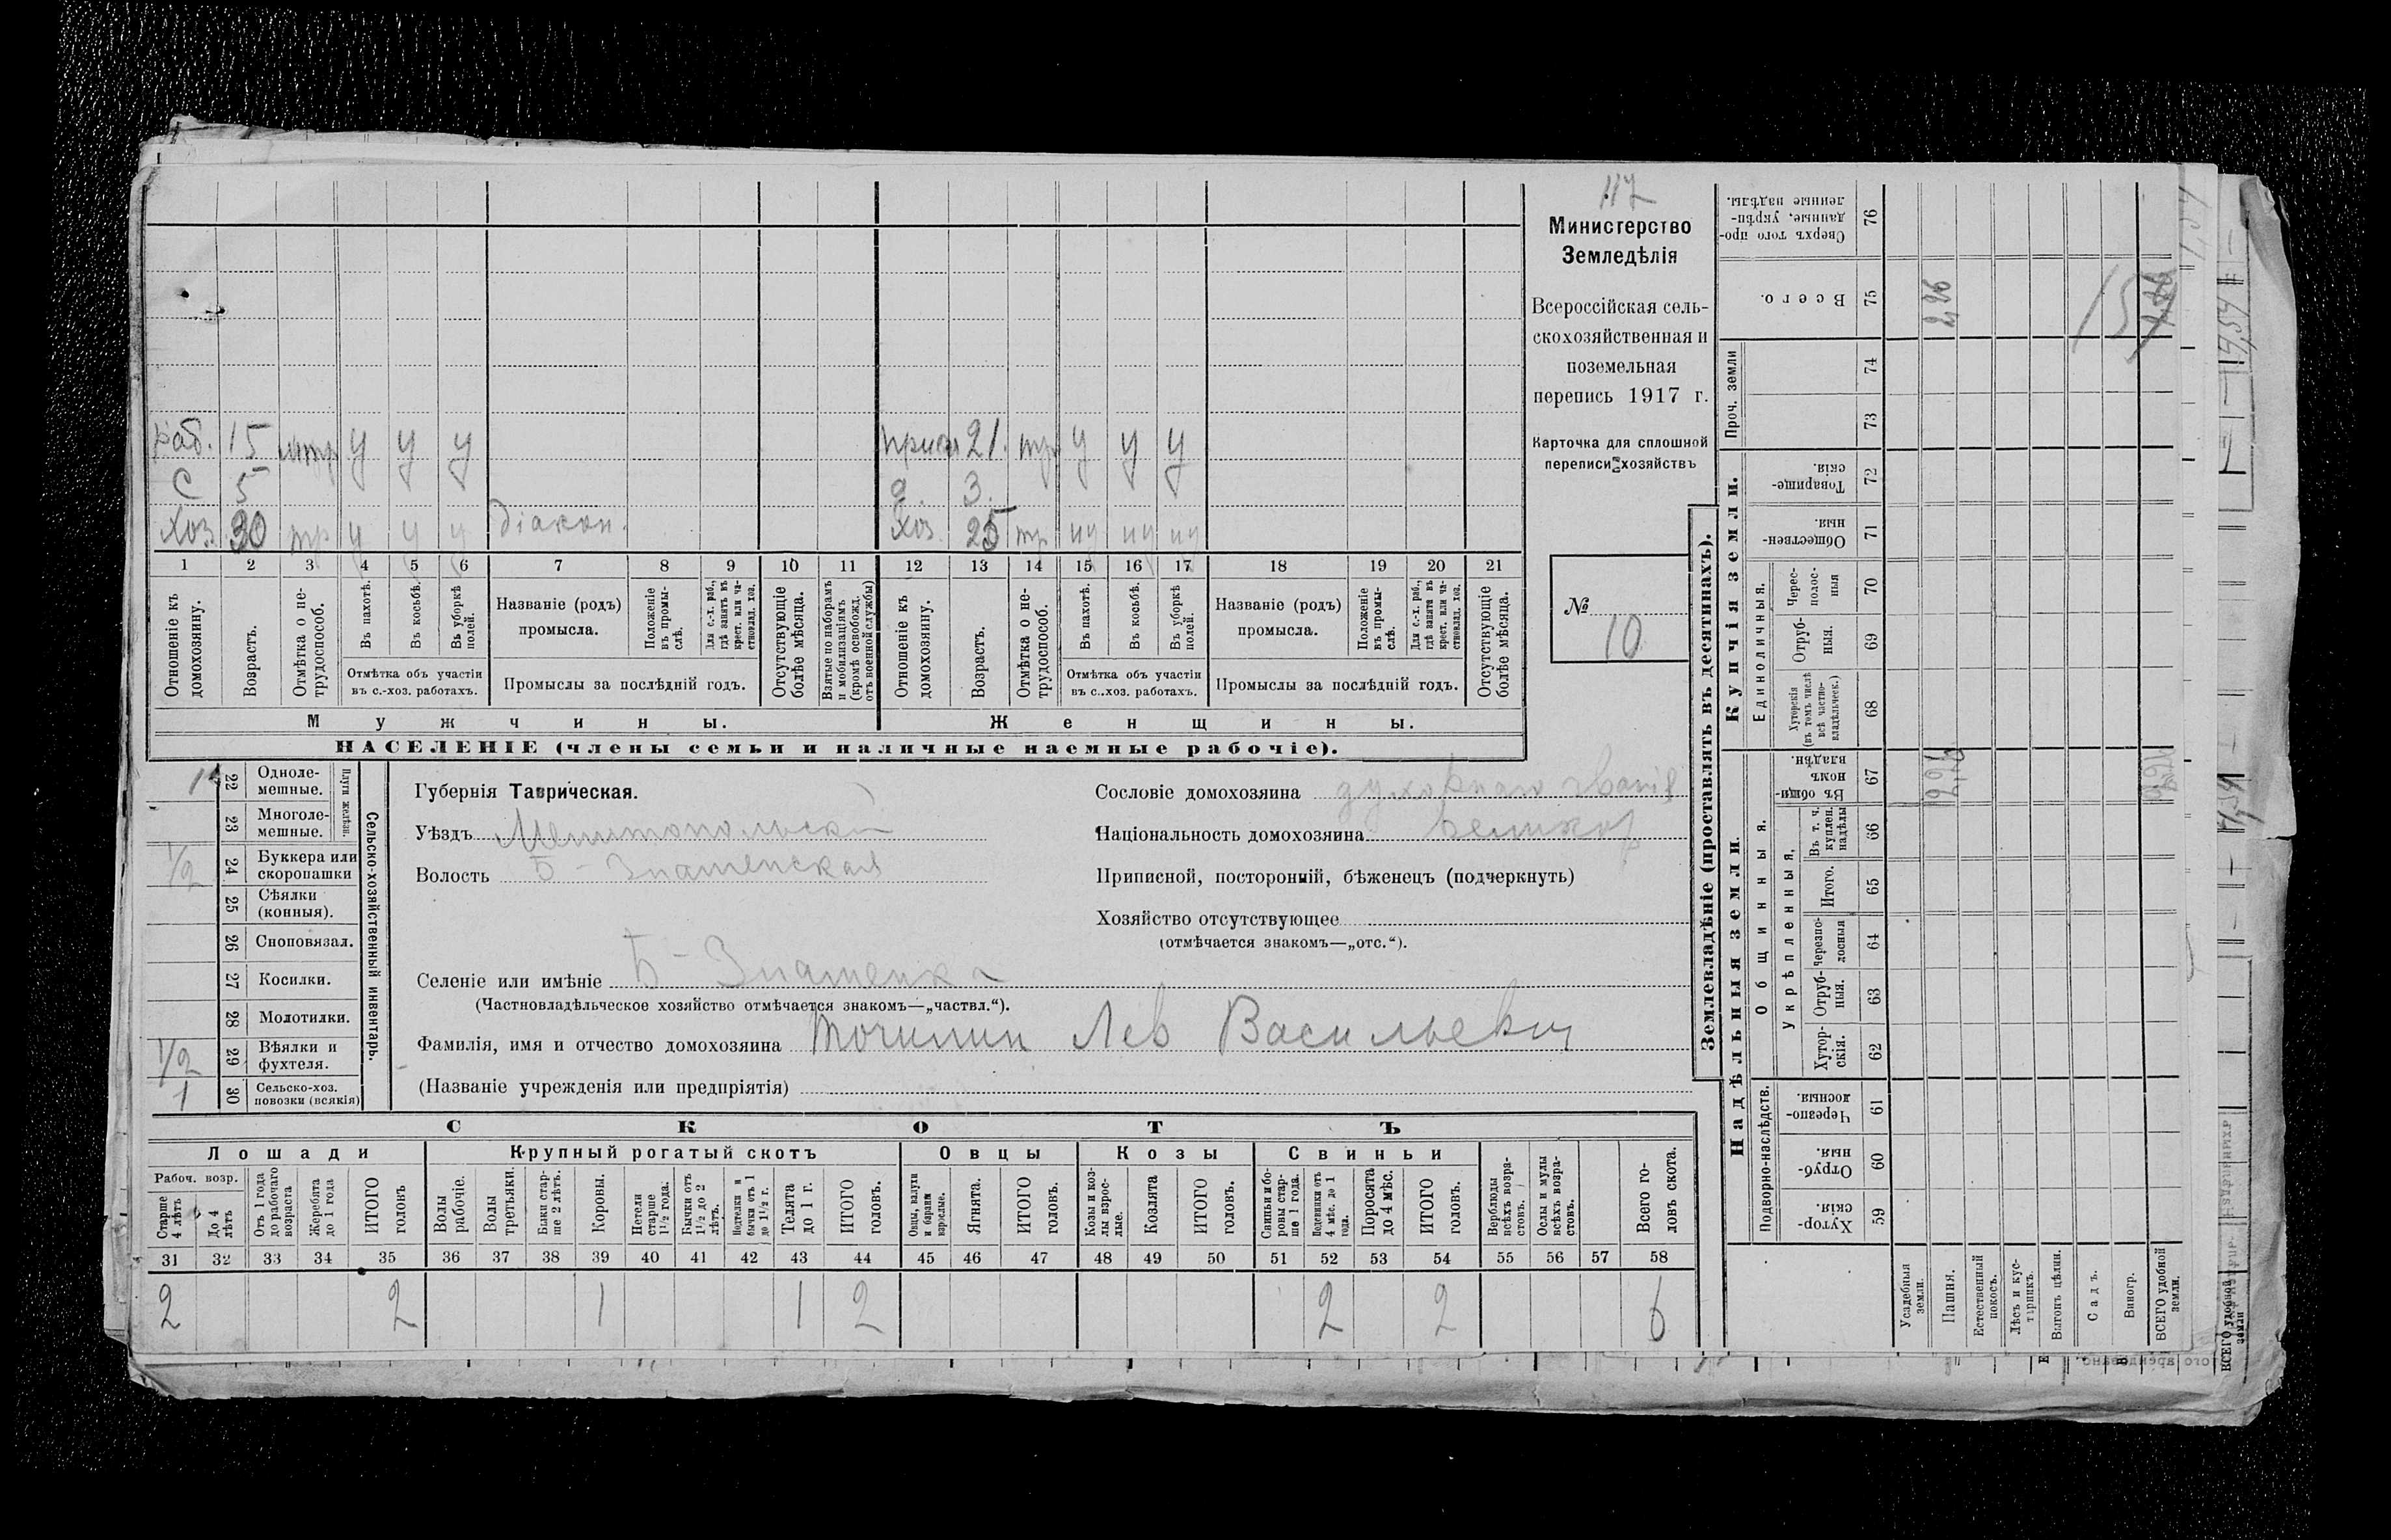 117
Министерство
Земледѣлія
Всероссійская сель-
скохозяйственная и
поземельная
перепись 1917 г.
Карточка для сплошной
переписи хозяйствъ
№
10
раб. 15 у у у 21. тр у у у
С 5 д. 3.
Хоз. 30 тр у у у діакон. Хоз. 25 тр ну ну ну
1 2 3 4 5 6 7 8 9 10 11 12 13 14 15 16 17 18 19 20 21
Отношеніе къ домохозяину.
Возрастъ.
Отмѣтка о не-трудоспособ.
Въ пахотѣ.
Въ косьбѣ.
Въ уборкѣ полей.
Отмѣтка объ участіи
въ с.-хоз. работахъ.
Названіе (родъ)
промысла.
Положеніе въ промы-слѣ.
Для с.-х. раб., гдѣ занятъ въ крест. или ча-стновлад. хоз.
Промыслы за послѣдній годъ.
Отсутствующіе болѣе мѣсяца.
Взятые по наборамъ и мобилизаціямъ (кромѣ освобожд. отъ военной службы)
Отношеніе къ домохозяину.
Возрастъ.
Отмѣтка о не-трудоспособ.
Въ пахотѣ.
Въ косьбѣ.
Въ уборкѣ полей.
Отмѣтка объ участіи
въ с..хоз. работахъ.
Названіе (родъ)
промысла.
Положеніе въ промы-слѣ.
Для с.-х. раб., гдѣ занята въ крест. или ча-стновлад. хоз.
Промыслы за послѣдній годъ.
Отсутствующіе болѣе мѣсяца.
Мужчины. Женщины.
НАСЕЛЕНІЕ (члены семьи и наличные наемные рабочіе).
Сельско-хозяйственный инвентарь.
Плуги желѣзн.
1 22 Одноле-мешные.
23 Многоле-мешные.
1/2 24 Буккера или скоропашки
25 Сѣялки (конныя).
26 Сноповязал.
27 Косилки.
28 Молотилки.
1/2 29 Вѣялки и фухтеля.
1 30 Сельско-хоз. повозки (всякія)
Губернія Таврическая.
Уѣздъ Мелитопольскій
Волость Б-Знаменская
Селеніе или имѣніе Б-Знаменка
(Частновладѣльческое хозяйство отмѣчается знакомъ—„частвл.“).
Фамилія, имя и отчество домохозяина Точилин Лев Васильевич
(Названіе учрежденія или предпріятія)
Сословіе домохозяина духовнаго званія
Національность домохозяина великор
Приписной, посторонній, бѣженецъ (подчеркнуть)
Хозяйство отсутствующее
(отмѣчается знакомъ—„отс.“).
СКОТЪ
Лошади Крупный рогатый скотъ Овцы Козы Свиньи
Рабоч. возр.
Старше 4 лѣтъ
До 4 лѣтъ
Отъ 1 года до рабочаго возраста
Жеребята до 1 года
ИТОГО головъ
Волы рабочіе.
Волы третьяки.
Быки стар-ше 2 лѣтъ.
Коровы.
Нетели старше 1½ года.
Бычки отъ 1½ до 2 лѣтъ.
Подтелки и бычки отъ 1 до 1½ г.
Телята до 1 г.
ИТОГО головъ.
Овцы, валухи и бараны взрослые.
Ягнята.
ИТОГО головъ.
Козы и коз-лы взрос-лые.
Козлята
ИТОГО головъ.
Свиньи и бо-ровы стар-ше 1 года.
Подсвинки отъ 4 мѣс. до 1 года.
Поросята до 4 мѣс.
ИТОГО головъ.
Верблюды всѣхъ возра-стовъ.
Ослы и мулы всѣхъ возра-стовъ.
Всего го-ловъ скота.
31 32 33 34 35 36 37 38 39 40 41 42 43 44 45 46 47 48 49 50 51 52 53 54 55 56 57 58
2 2 1 1 2 2 2 6
Землевладѣніе (проставлять въ десятинахъ).
Купчія земли.
Надѣльныя земли.
Сверхъ того про-данные, укрѣп-ленные надѣлы. 76
Всего. 75
Проч. земли 74 73
Товарище-скія. 72
Обществен-ныя. 71
Единоличныя.
Черес-полос-ныя 70
Отруб-ныя. 69
Хуторскія (въ томъ числѣ всѣ частно-владѣльческ.) 68
Общинныя.
Въ общи-номъ владѣн. 67
Укрѣпленныя.
Въ т. ч. куплен. надѣлы 66
Итого. 65
Черезпо-лосныя 64
Отруб-ныя. 63
Хутор-скія. 62
Подворно-наслѣдств.
Черезпо-лосныя. 61
Отруб-ныя. 60
Хутор-скія. 59
Усадебныя земли.
Пашня. 2,26 2,26
Естественный покосъ.
Лѣсъ и кус-тарникъ.
Выгонъ цѣлин.
Садъ.
Виногр.
ВСЕГО удобной земли.
ВСЕГО удобной земли